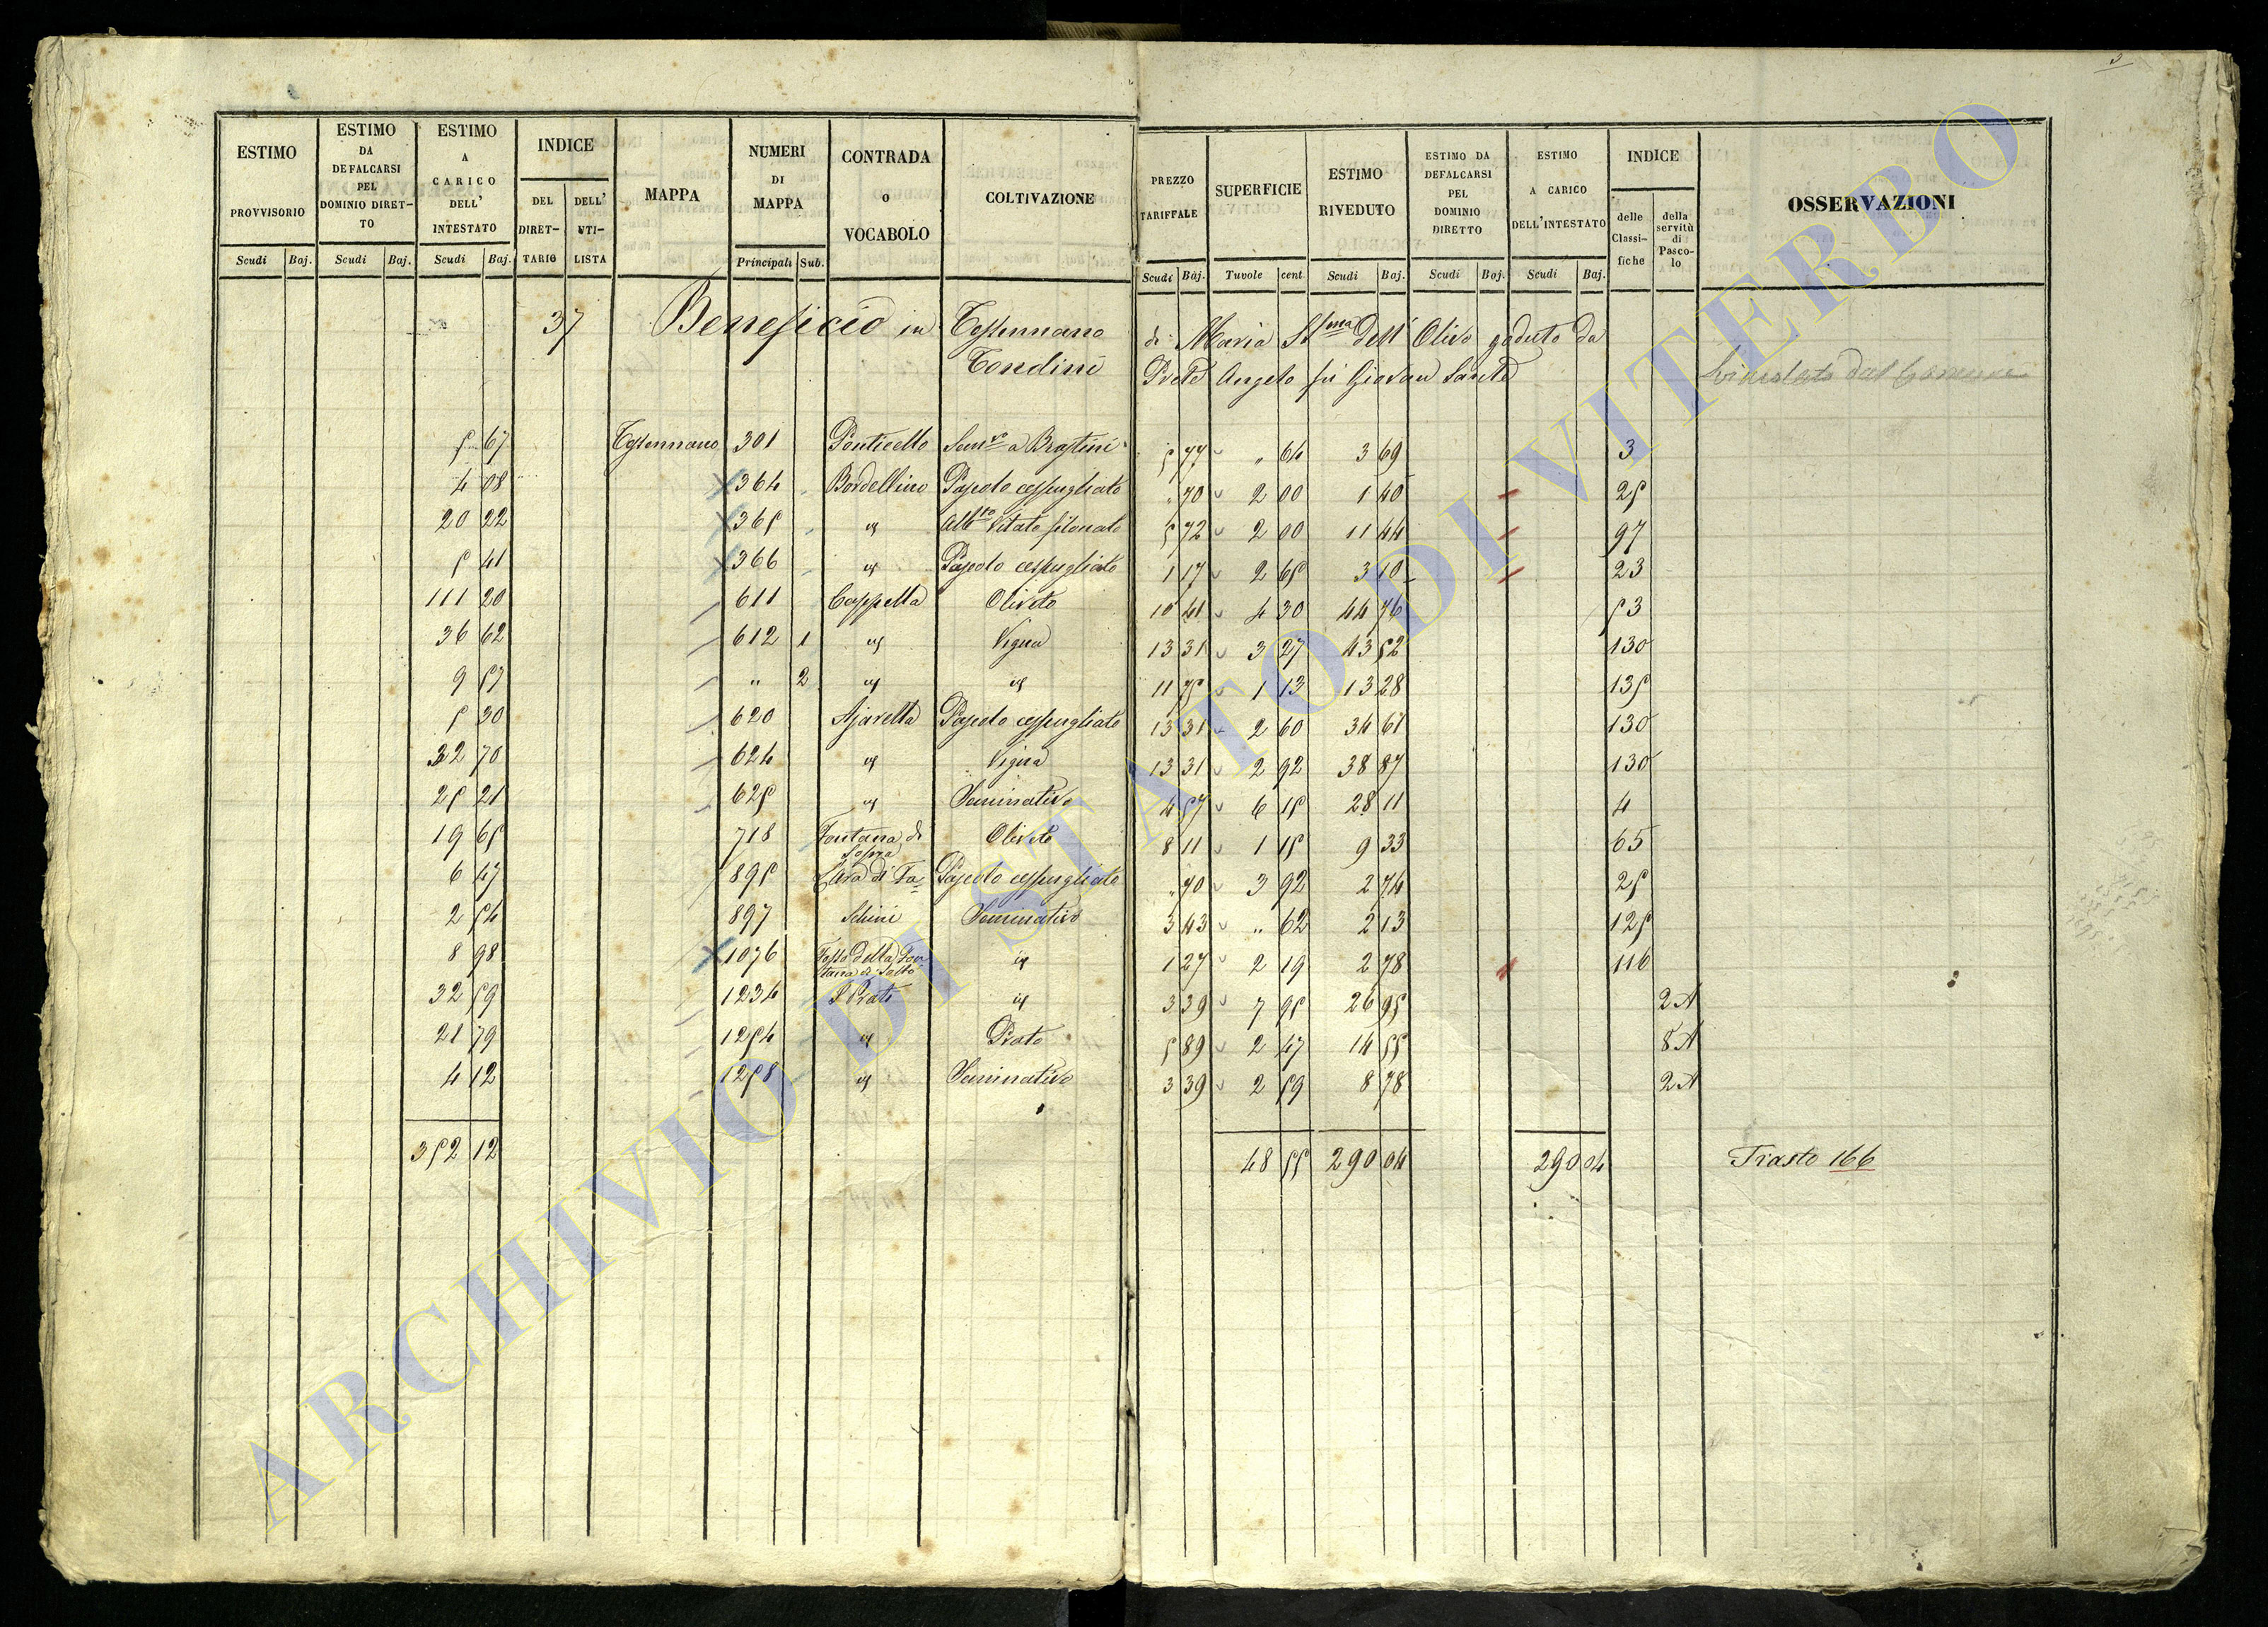 5
ESTIMO PROVVISORIO | ESTIMO DA DEFALCARSI PEL DOMINIO DIRETTO | ESTIMO A CARICO DELL' INTESTATO | INDICE DEL DIRETTARIO | DELL' UTILISTA | MAPPA | NUMERI DI MAPPA | CONTRADA o VOCABOLO | COLTIVAZIONE | PREZZO TARIFFALE | SUPERFICIE | ESTIMO RIVEDUTO | ESTIMO DA DEFALCARSI PEL DOMINIO DIRETTO | ESTIMO A CARICO DELL'INTESTATO | INDICE delle Classifiche | della servitù di Pascolo | OSSERVAZIONI
Scudi Baj. Scudi Baj. Scudi Baj. Principali Sub. Scudi Baj. Tavole cent. Scudi Baj. Scudi Baj. Scudi Baj.
37 Beneficio in Tessennano di Maria SSma dell' Olivo goduto da
Tondini Angelo fù Giovan
5 67 Tessennano 301 Ponticello 5 77 " 64 3 69 3
4 08 364 Bordellino Pascolo cespugliato " 70 2 00 1 40 25
20 22 365 id Vitato filonato 5 72 2 00 11 44 97
5 41 366 id Pascolo cespugliato 1 17 2 65 3 10 23
111 20 611 Cappella Oliveto 10 41 4 30 44 76 53
36 62 612 1 id Vigna 13 31 3 27 43 52 130
9 57 " 2 id id 11 75 1 13 13 28 135
5 30 620 Ajaretta Pascolo cespugliato 13 31 2 60 34 61 130
32 70 624 id Vigna 13 31 2 92 38 87 130
25 21 625 id Seminativo 4 57 6 15 28 11 4
19 65 718 Fontana di Sopra Oliveto 8 11 1 15 9 33 65
6 47 895 Pascolo cespugliato " 70 3 92 2 74 25
2 54 897 Seminativo 3 43 " 62 2 13 125
8 98 1076 Fosso della Fontana di Sotto id 1 27 2 19 2 78 116
32 59 1234 I Prati id 3 39 7 95 26 95 2 A
21 79 1254 id Prato 5 89 2 47 14 55 8 A
4 12 1258 id Seminativo 3 39 2 59 8 78 2 A
352 12 48 55 290 04 290 04 Trasto 166
ARCHIVIO DI STATO DI VITERBO